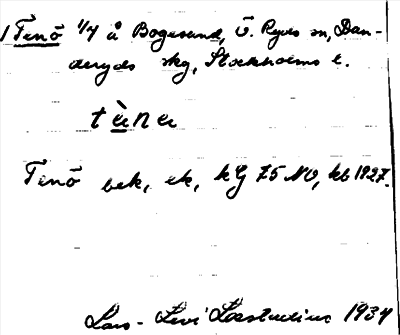 1 Tenö 1/4 å Bogesund, Ö. Ryds sn, Dan-
deryds skg, Stockholms l.
tèna
Tenö bek, ek, kG 75 NO, kb 1927.
Lars-Levi Læstadius 1934